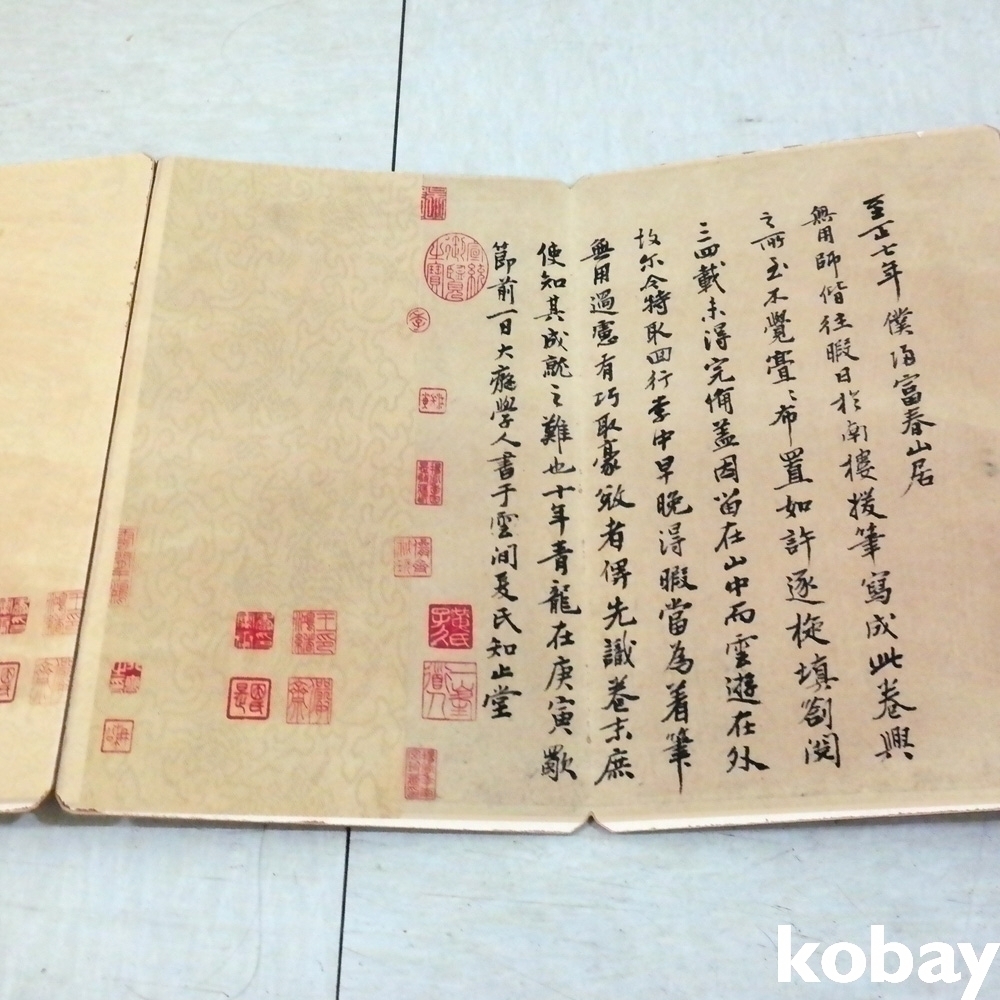 至正七年僕歸富春山居
無用師偕往暇日於南樓援筆寫成此卷興
之所至不覺亹亹布置如許逐旋填劄閱
三四載未得完備蓋因留在山中而雲遊在外
故尔今特取回行李中早晚得暇當為着筆
無用過慮有巧取豪敚者俾先識卷末庶
使知其成就之難也十年青龍在庚寅歜
節前一日大癡學人書于雲間夏氏知止堂
宣統御覽之寶
季
黃氏子久
一峯道人
kobay